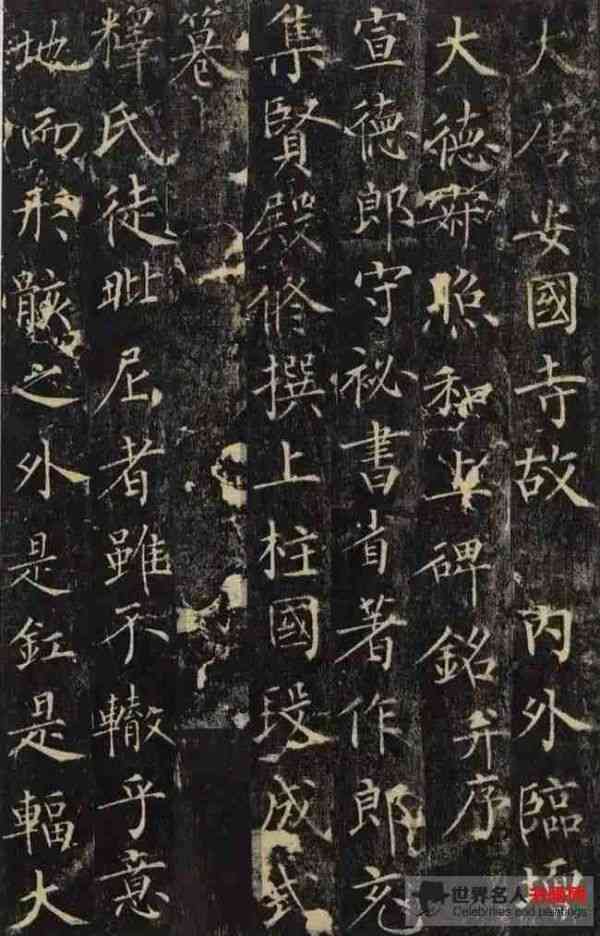 大唐安國寺故 内外臨壇
大德寂照和上碑銘并序
宣德郎守祕書省著作郎充
集賢殿修撰上柱國段成式
纂
釋氏徒毗尼者雖不轍乎意
地而形骸之外是釭是輻大
世界名人
Celebrities and paintings